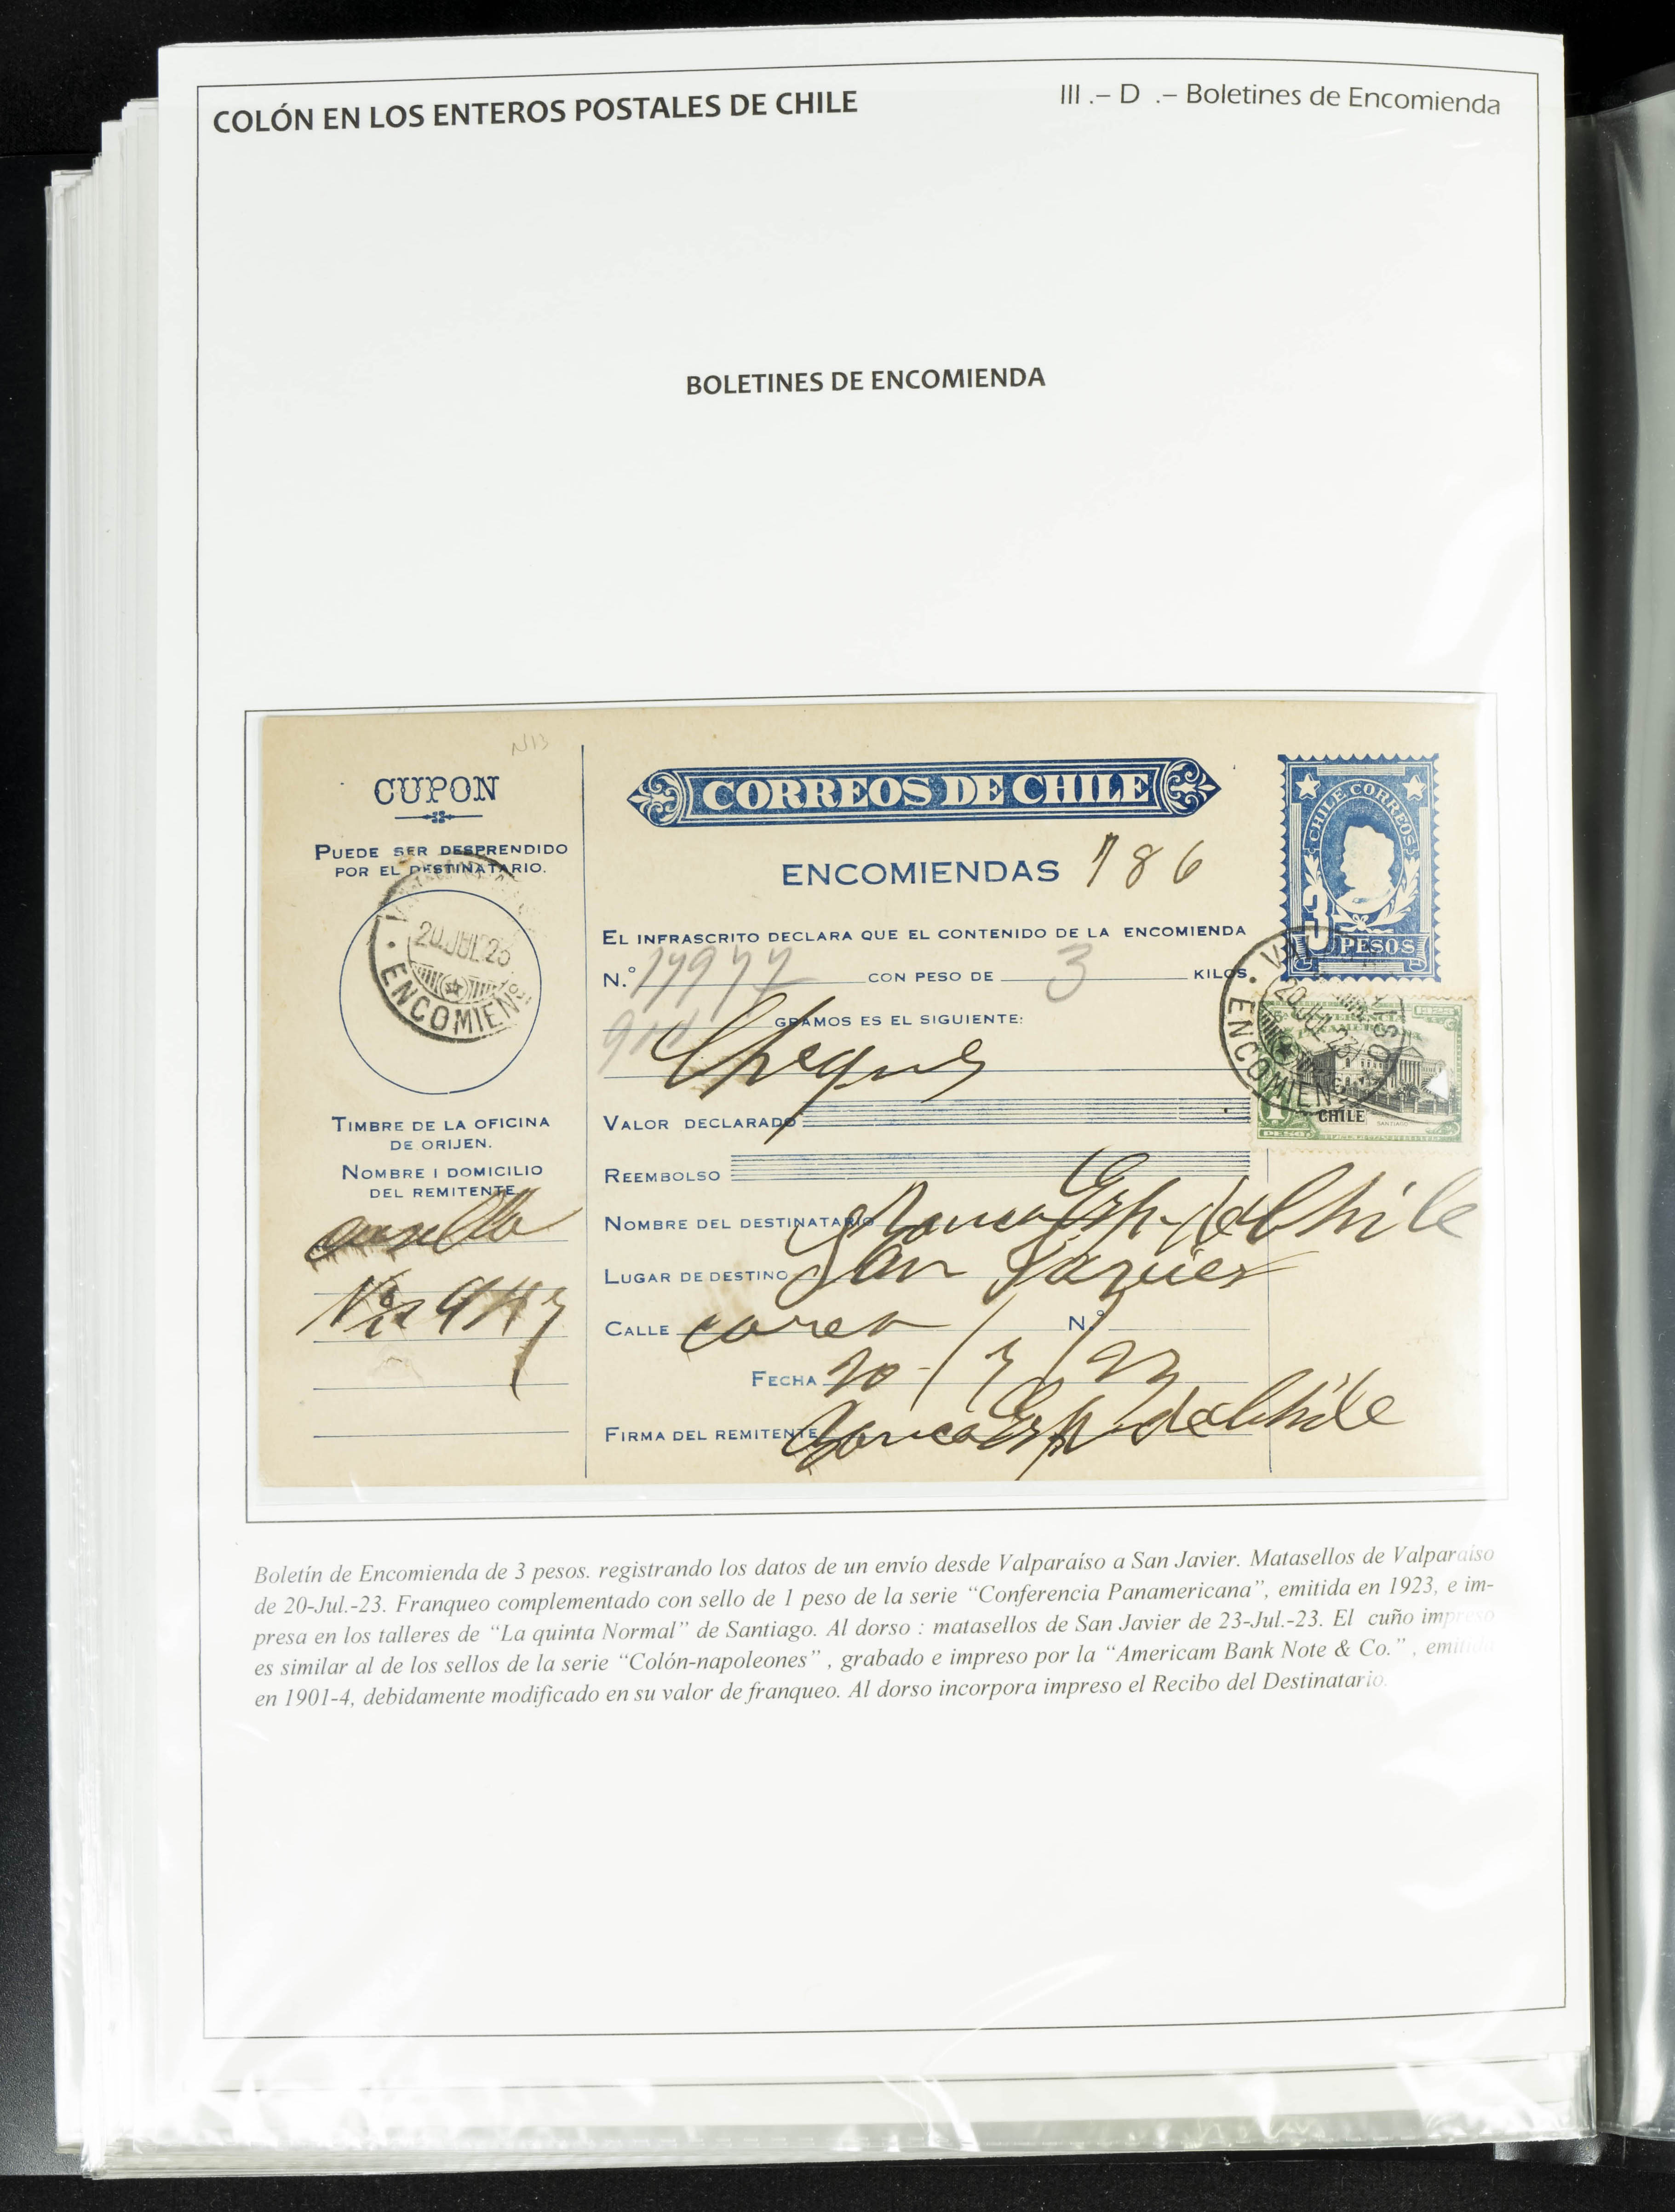 COLÓN EN LOS ENTEROS POSTALES DE CHILE
III .– D .– Boletines de Encomienda
BOLETINES DE ENCOMIENDA
CUPON
PUEDE SER DESPRENDIDO
POR EL DESTINATARIO.
20 JUL 23
ENCOMIEN
TIMBRE DE LA OFICINA
DE ORIJEN.
NOMBRE I DOMICILIO
DEL REMITENTE
casilla
CORREOS DE CHILE
ENCOMIENDAS 186
EL INFRASCRITO DECLARA QUE EL CONTENIDO DE LA ENCOMIENDA
N.º CON PESO DE 3 KILOS
GRAMOS ES EL SIGUIENTE:
Cheques
VALOR DECLARADO
REEMBOLSO
NOMBRE DEL DESTINATARIO Banco Esp. de Chile
LUGAR DE DESTINO San Javier
CALLE
Nº
FECHA 20/7/23
FIRMA DEL REMITENTE Banco Esp. de Chile
CHILE CORREOS
3
PESOS
20 JUL 23
ENCOMIEN
1
PESO
CHILE
SANTIAGO
Boletín de Encomienda de 3 pesos. registrando los datos de un envío desde Valparaíso a San Javier. Matasellos de Valparaíso
de 20-Jul.-23. Franqueo complementado con sello de 1 peso de la serie “Conferencia Panamericana”, emitida en 1923, e im-
presa en los talleres de “La quinta Normal” de Santiago. Al dorso : matasellos de San Javier de 23-Jul.-23. El cuño impreso
es similar al de los sellos de la serie “Colón-napoleones” , grabado e impreso por la “Americam Bank Note & Co.” , emitida
en 1901-4, debidamente modificado en su valor de franqueo. Al dorso incorpora impreso el Recibo del Destinatario.